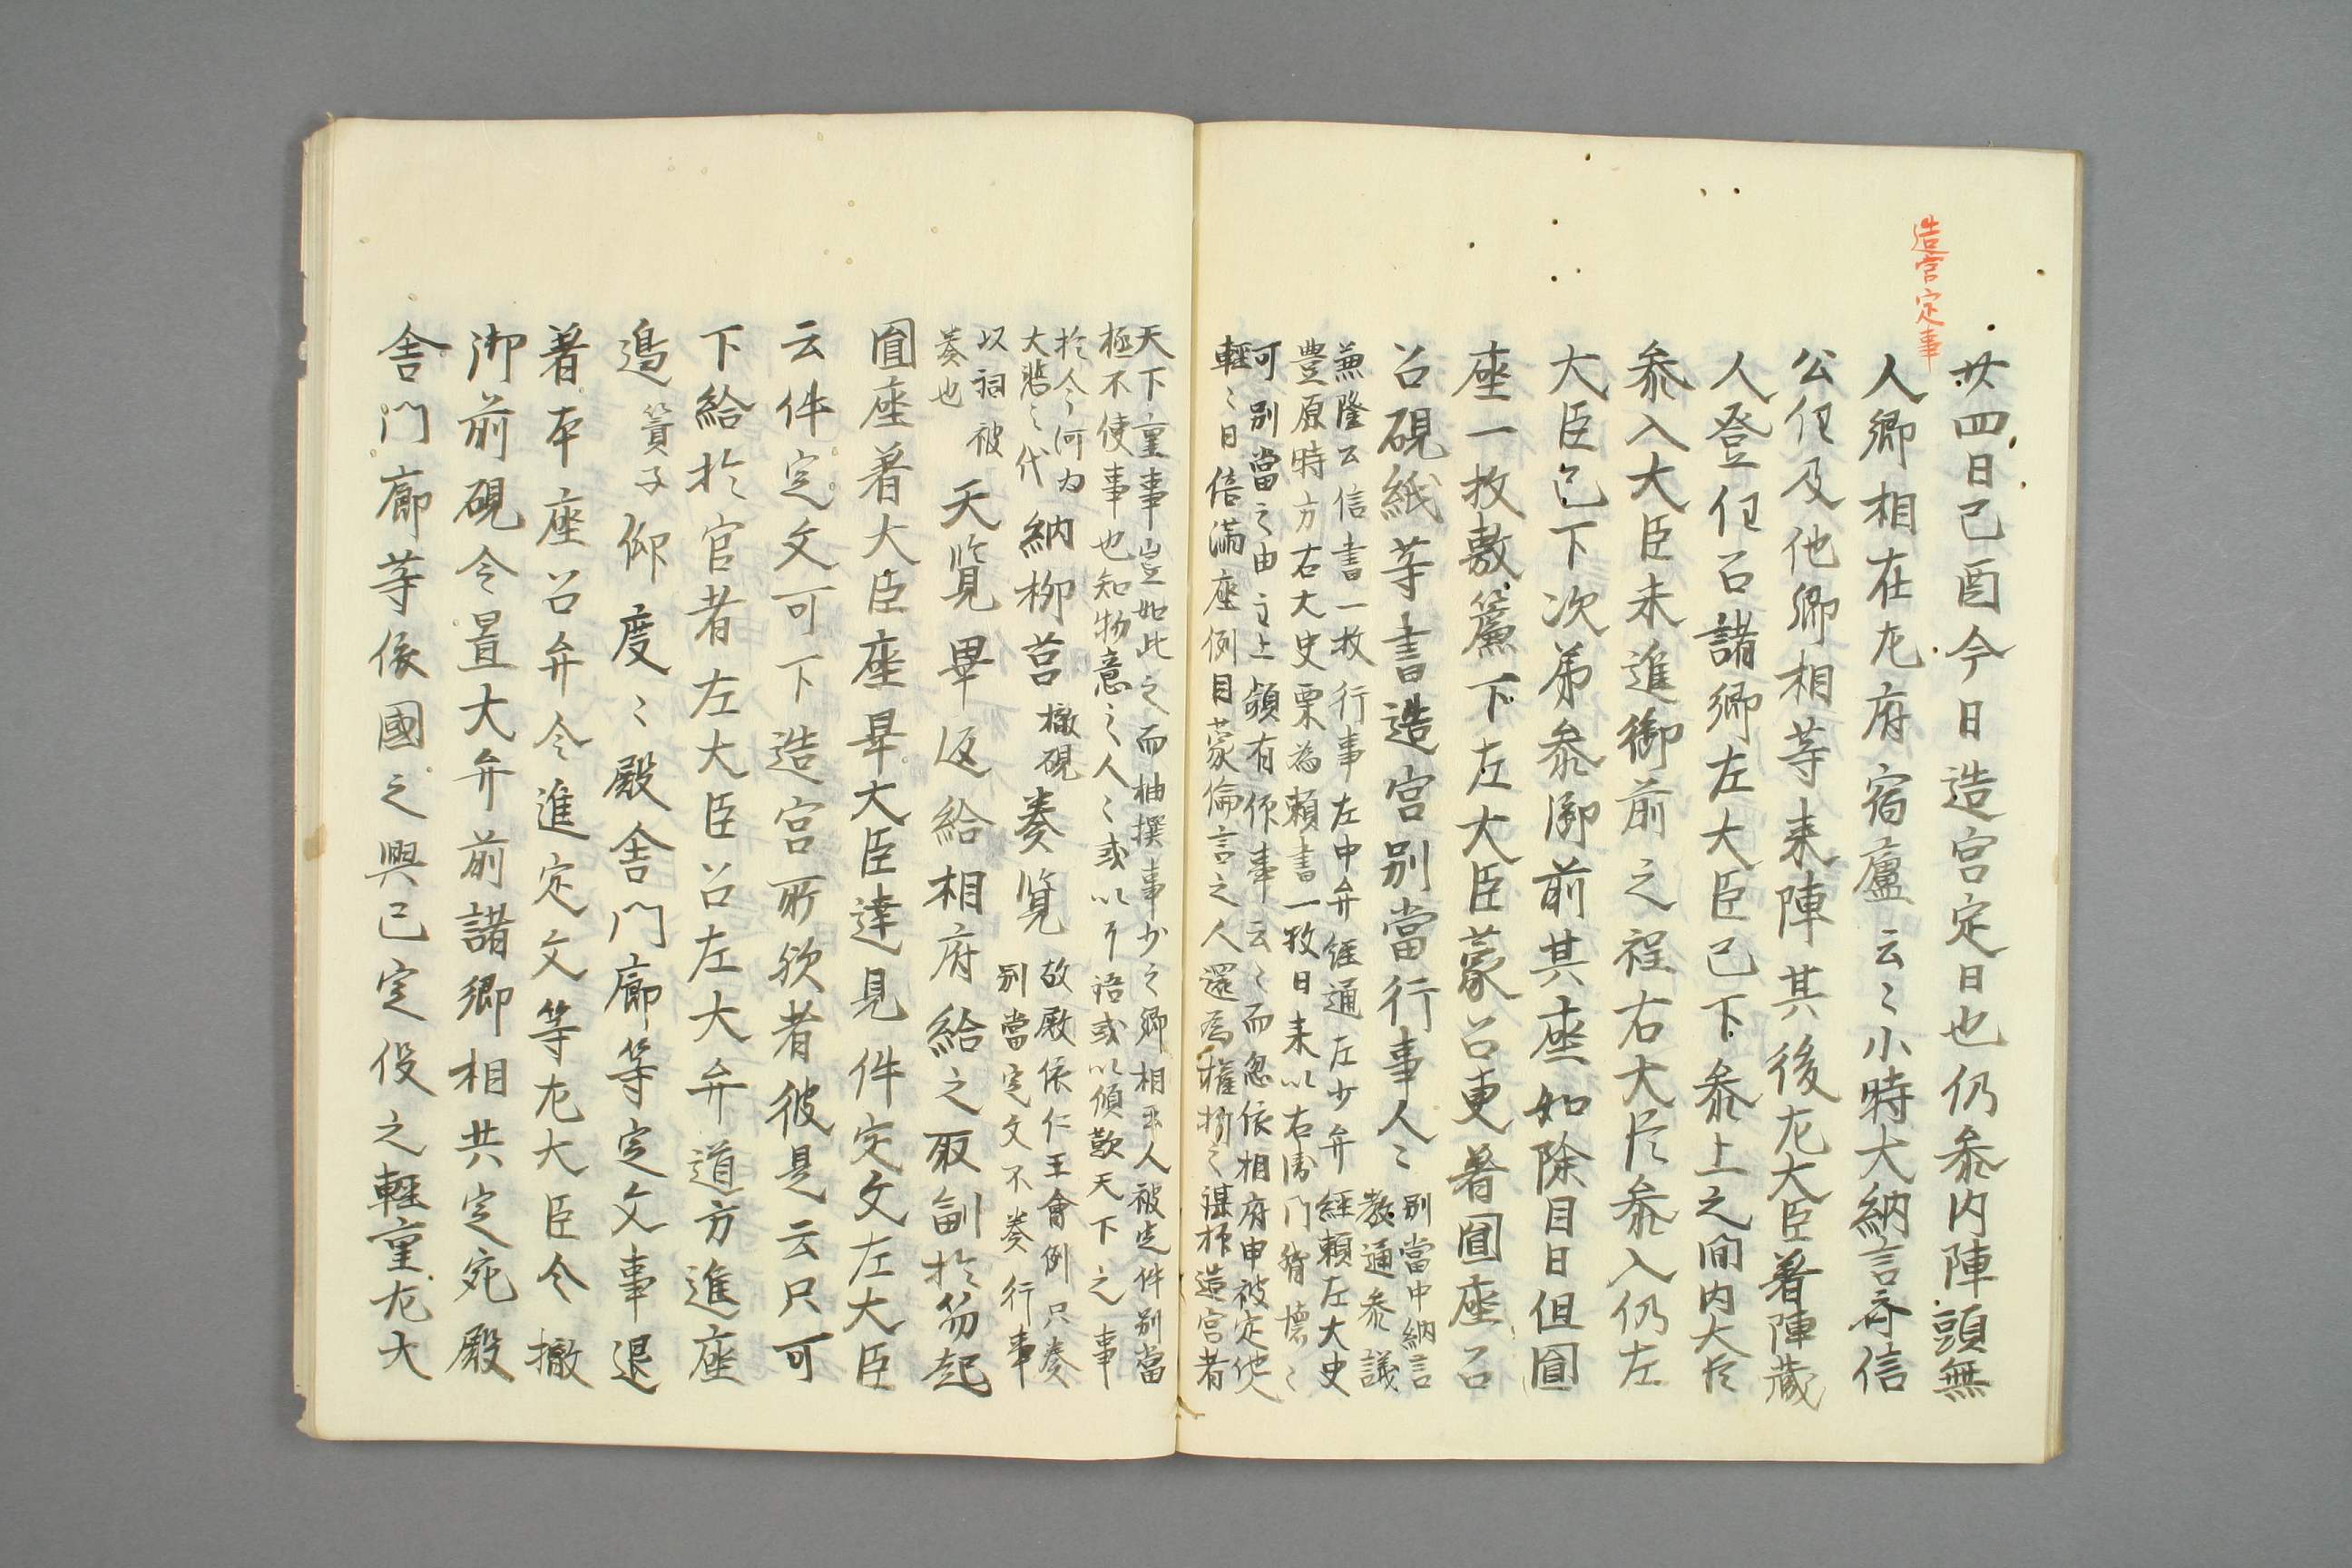 造宮定事
廿四日己酉今日造宮定日也仍参内陣頭無
人卿相在左府宿廬云〻小時大納言斉信
公任及他卿相等来陣其後左大臣著陣蔵
人登任召諸卿左大臣已下参上之間内大臣
参入大臣未進御前之程右大臣参入仍左
大臣已下次第参御前其座如除目日但圓
座一枚敷簾下左大臣蒙召更著圓座召
召硯紙等書造宮別當行事人〻
別當中納言
教通参議
兼隆云信書一枚行事左中弁経通左少弁経頼左大史
豊原時方右大史粟為頼書一牧日来以右衛門督懐〻
可別當之由主上頷有作事云〻而忽依相府申被定他人
輕〻日倍満座例目蒙倫言之人還為權於之謀枉造宮者
天下重事豈如此之而抽撰事少之卿相云人被定件別當
極不使事也知物意之人〻或以耳語或以傾歎天下之事
於今何為
大悲之代
納柳筥
撤硯
奏覧
故殿依仁王會例只奏
別當定文不奏行事
以詞被
奏也
天覧畢返給相府給之取副於笏起
圓座著大臣座畢大臣達見件定文左大臣
云件定文可下造宮所欤者彼是云只可
下給於官者左大臣召左大弁道方進座
邉
簀子
仰度〻殿舎門廊等定文事退
著本座召弁令進定文等左大臣令撤
御前硯令置大弁前諸卿相共定宛殿
舎門廊等依國之興已定役之輕重左大